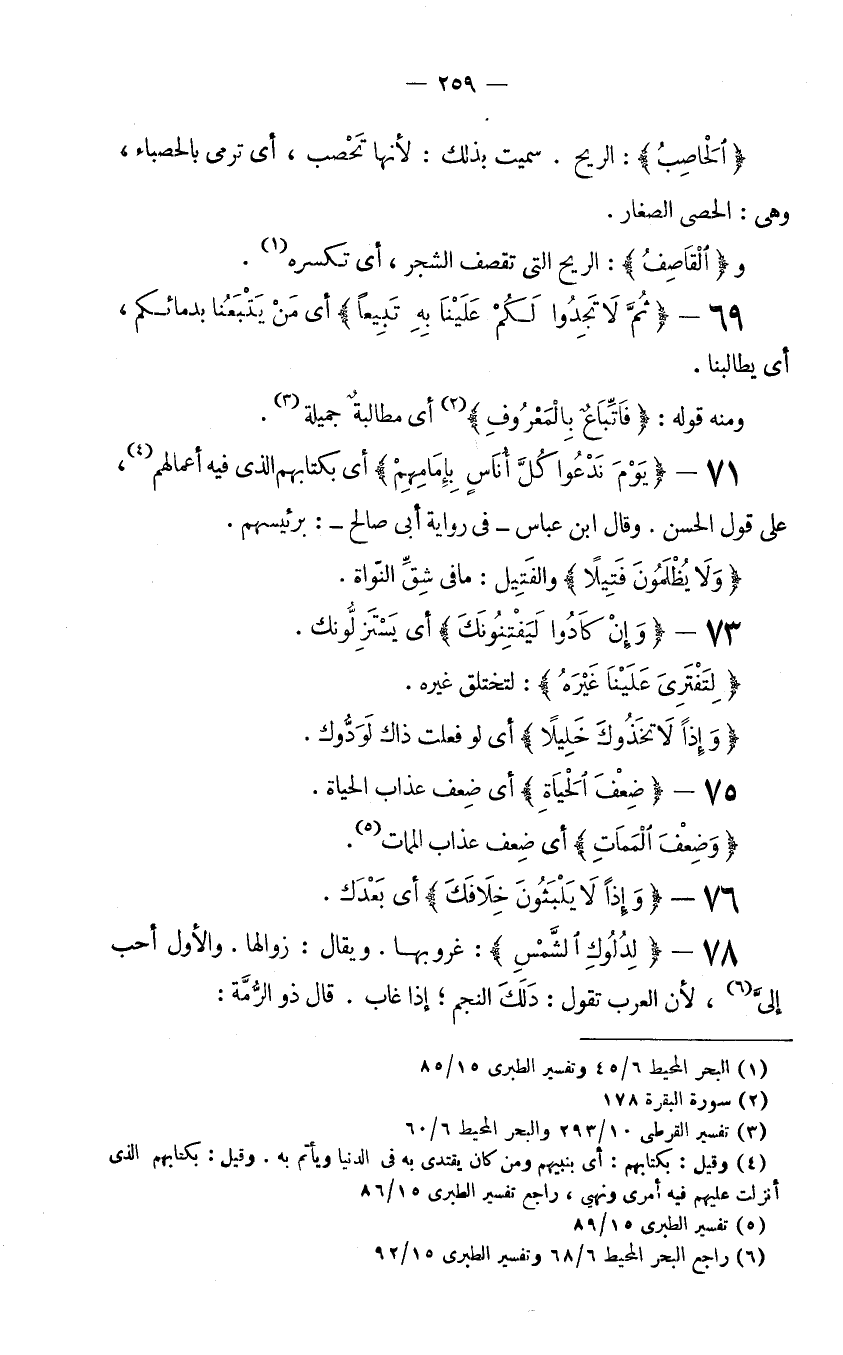 — ٢٥٩ —
﴿ ٱلْحَاصِبُ ﴾ : الريح . سميت بذلك : لأنها تَحْصب ، أى ترمى بالحصباء ،
وهى : الحصى الصغار .
و ﴿ ٱلْقَاصِفُ ﴾ : الريح التى تقصف الشجر ، أى تكسره(١) .
٦٩ — ﴿ ثُمَّ لَا تَجِدُوا لَكُمْ عَلَيْنَا بِهِ تَبِيعاً ﴾ أى مَنْ يَتْبَعُنا بدمائكم ،
أى يطالبنا .
ومنه قوله : ﴿ فَاتِّبَاعٌ بِالْمَعْرُوفِ ﴾(٢) أى مطالبةٌ جميلة(٣) .
٧١ — ﴿ يَوْمَ نَدْعُوا كُلَّ أُنَاسٍ بِإِمَامِهِمْ ﴾ أى بكتابهم الذى فيه أعمالهم(٤) ،
على قول الحسن . وقال ابن عباس – فى رواية أبى صالح – : برئيسهم .
﴿ وَلَا يُظْلَمُونَ فَتِيلًا ﴾ والفَتِيل : مافى شِقِّ النّواة .
٧٣ — ﴿ وَإِنْ كَادُوا لَيَفْتِنُونَكَ ﴾ أى يَسْتَزِلُّونك .
﴿ لِتَفْتَرِىَ عَلَيْنَا غَيْرَهُ ﴾ : لتختلق غيره .
﴿ وَإِذاً لَاتَّخَذُوكَ خَلِيلًا ﴾ أى لو فعلت ذاك لَوَدُّوك .
٧٥ — ﴿ ضِعْفَ ٱلْحَيَاةِ ﴾ أى ضعف عذاب الحياة .
﴿ وَضِعْفَ ٱلْمَمَاتِ ﴾ أى ضِعف عذاب الممات(٥).
٧٦ — ﴿ وَإِذاً لَا يَلْبَثُونَ خِلَافَكَ ﴾ أى بَعْدَك .
٧٨ — ﴿ لِدُلُوكِ ٱلشَّمْسِ ﴾ : غروبها . ويقال : زوالها . والأول أحب
إلىَّ(٦) ، لأن العرب تقول : دَلَكَ النجم ؛ إذا غاب . قال ذو الرُّمَّة :
(١) البحر المحيط ٤٥/٦ وتفسير الطبرى ٨٥/١٥
(٢) سورة البقرة ١٧٨
(٣) تفسير القرطى ٢٩٣/١٠ والبحر المحيط ٦٠/٦
(٤) وقيل : بكتابهم : أى بنبيهم ومن كان يقتدى به فى الدنيا ويأتم به . وقيل : بكتابهم الذى
أنزلت عليهم فيه أمرى ونهي ، راجع تفسير الطبرى ٨٦/١٥
(٥) تفسير الطبرى ٨٩/١٥
(٦) راجع البحر المحيط ٦٨/٦ وتفسير الطبرى ٩٢/١٥